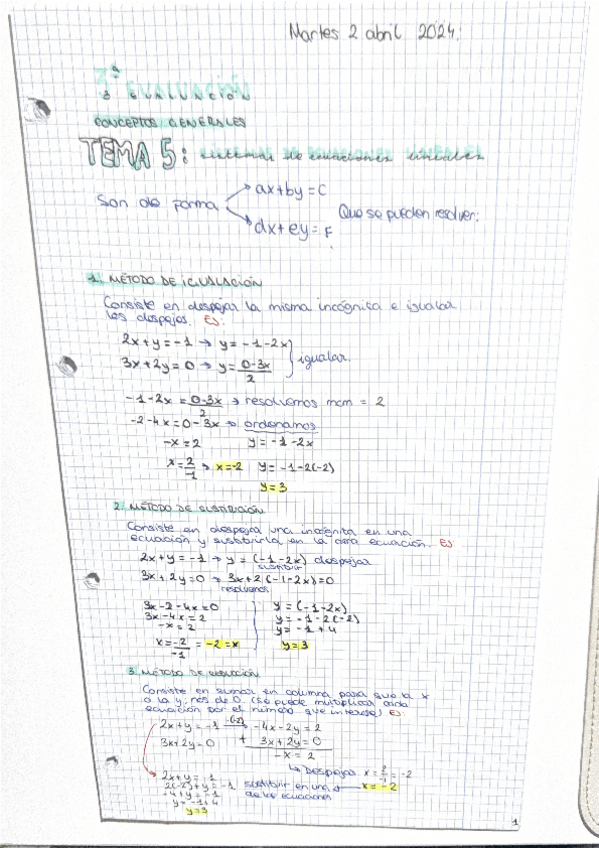 Martes 2 abril 2024.
3ª EVALUACIÓN
CONCEPTOS GENERALES
TEMA 5: sistemas de ecuaciones lineales
Son de forma
ax+by=C
dx+ey=F
Que se pueden resolver:
1. MÉTODO DE IGUALACIÓN
Consiste en despejar la misma incógnita e igualar
los despejes. Ej:
2x+y=-1 → y=-1-2x
3x+2y=0 → y=0-3x/2
igualar.
-1-2x=0-3x/2 → resolvemos mcm = 2
-2-4x=0-3x → ordenamos
-x=2 y=-1-2x
x=2/-1 → x=-2 y=-1-2(-2)
y=3
2. MÉTODO DE SUSTITUCIÓN
Consiste en despejar una incógnita en una
ecuación y sustituirla en la otra ecuación. Ej:
2x+y=-1 → y=(-1-2x) despejar
sustituir
3x+2y=0 → 3x+2(-1-2x)=0
resolvemos
3x-2-4x=0 y=(-1-2x)
3x-4x=2 y=-1-2(-2)
-x=2 y=-1+4
x=-2/-1=-2=x y=3
3. MÉTODO DE REDUCCIÓN
Consiste en sumar en columna para que la x
o la y, nos dé 0. (Se puede multiplicar cada
ecuación por el número que interese) Ej:
2x+y=-1 -(-2)→ -4x-2y=2
3x+2y=0 + 3x+2y=0
-x=2
↳ Despejar x=2/-1=-2
x=-2
sustituir en una
de las ecuaciones
2x+y=-1
2(-2)+y=-1
-4+y=-1
y=-1+4
y=3
1